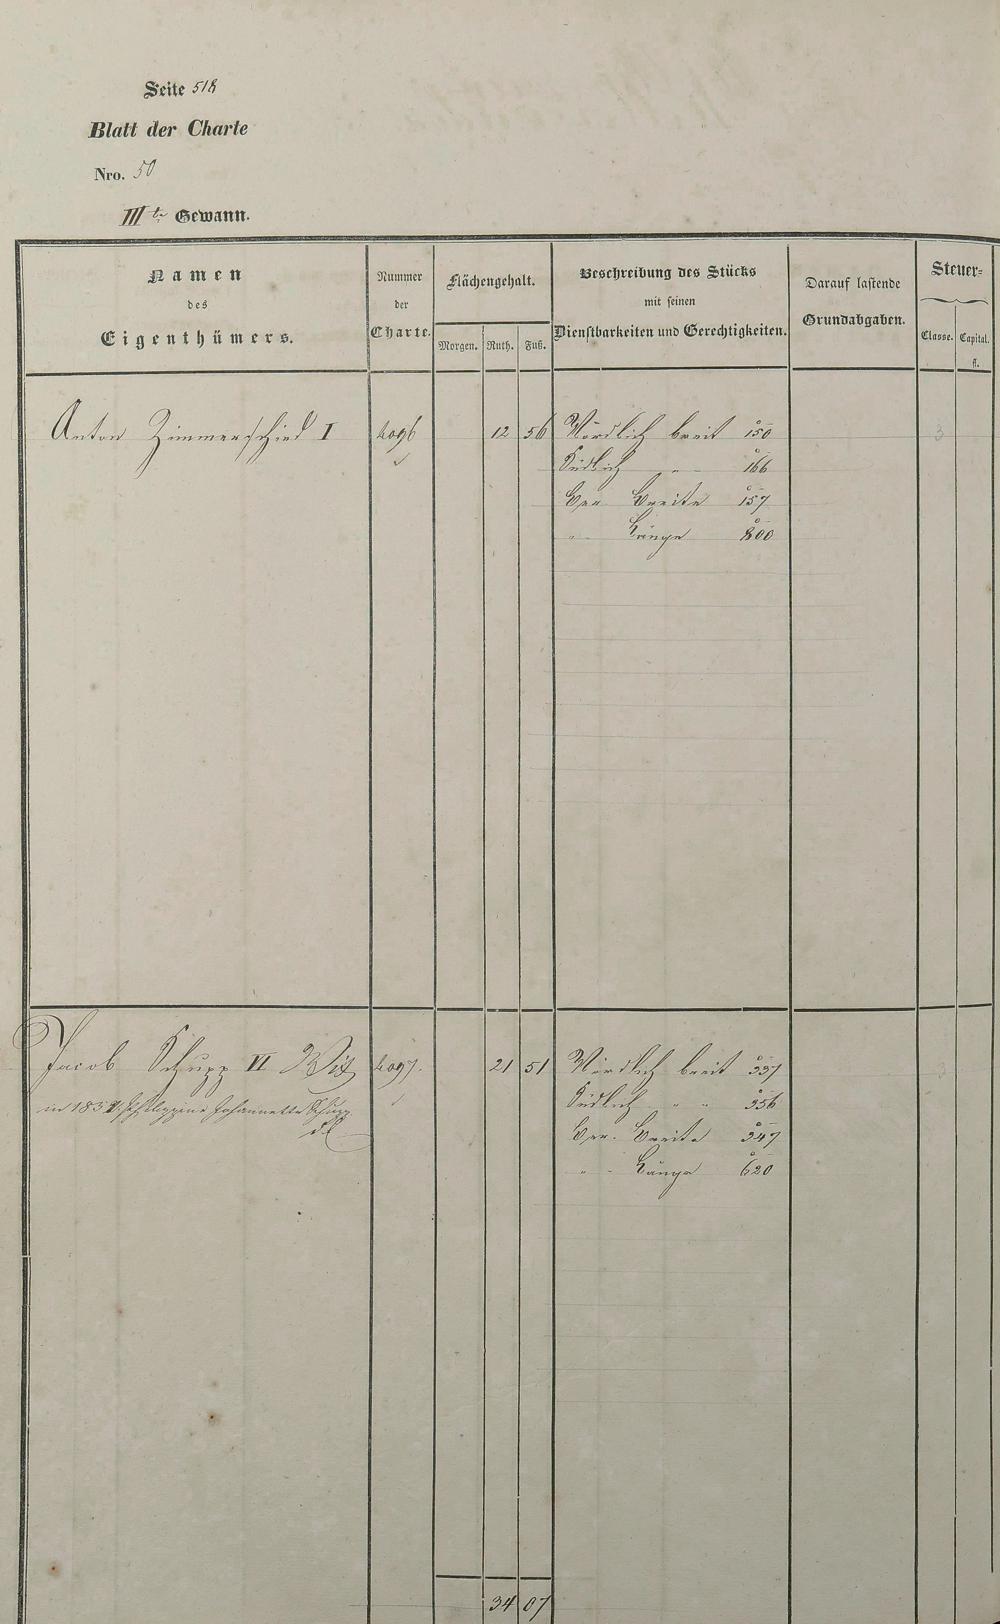 Seite 518
Blatt der Charte
Nro. 50
IIIte Gewann.
Namen des Eigenthümers.
Nummer der Charte.
Flächengehalt.
Morgen. Ruth. Fuß.
Beschreibung des Stücks mit seinen Dienstbarkeiten und Gerechtigkeiten.
Darauf lastende Grundabgaben.
Steuer-
Classe. Capital. fl.
Anton Zimmerschied I 4096 12 56 Nördlich breit 150 3
Südlich " 166
Ber. Breite 157
" Länge 800
Jacob Schupp VI Wit 4097. 21 51 Nördlich breit 337 3
in 185 Philippine Johannette Schupp Südlich " " 356
Ber. Breite 347
" Länge 620
34 07